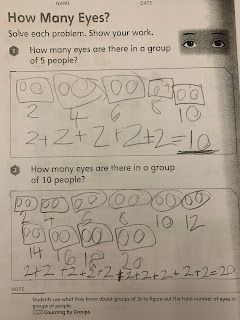 NAME DATE
How Many Eyes?
Solve each problem. Show your work.
1 How many eyes are there in a group
of 5 people?
2 4 6 8 10
2+2+2+2+2=10
2 How many eyes are there in a group
of 10 people?
2 4 6 8 10 12
14 16 18 20
2+2+2+2+2+2+2+2+2+2=20
NOTE
Students use what they know about groups of 2s to figure out the total number of eyes in
groups of people.
Counting by Groups